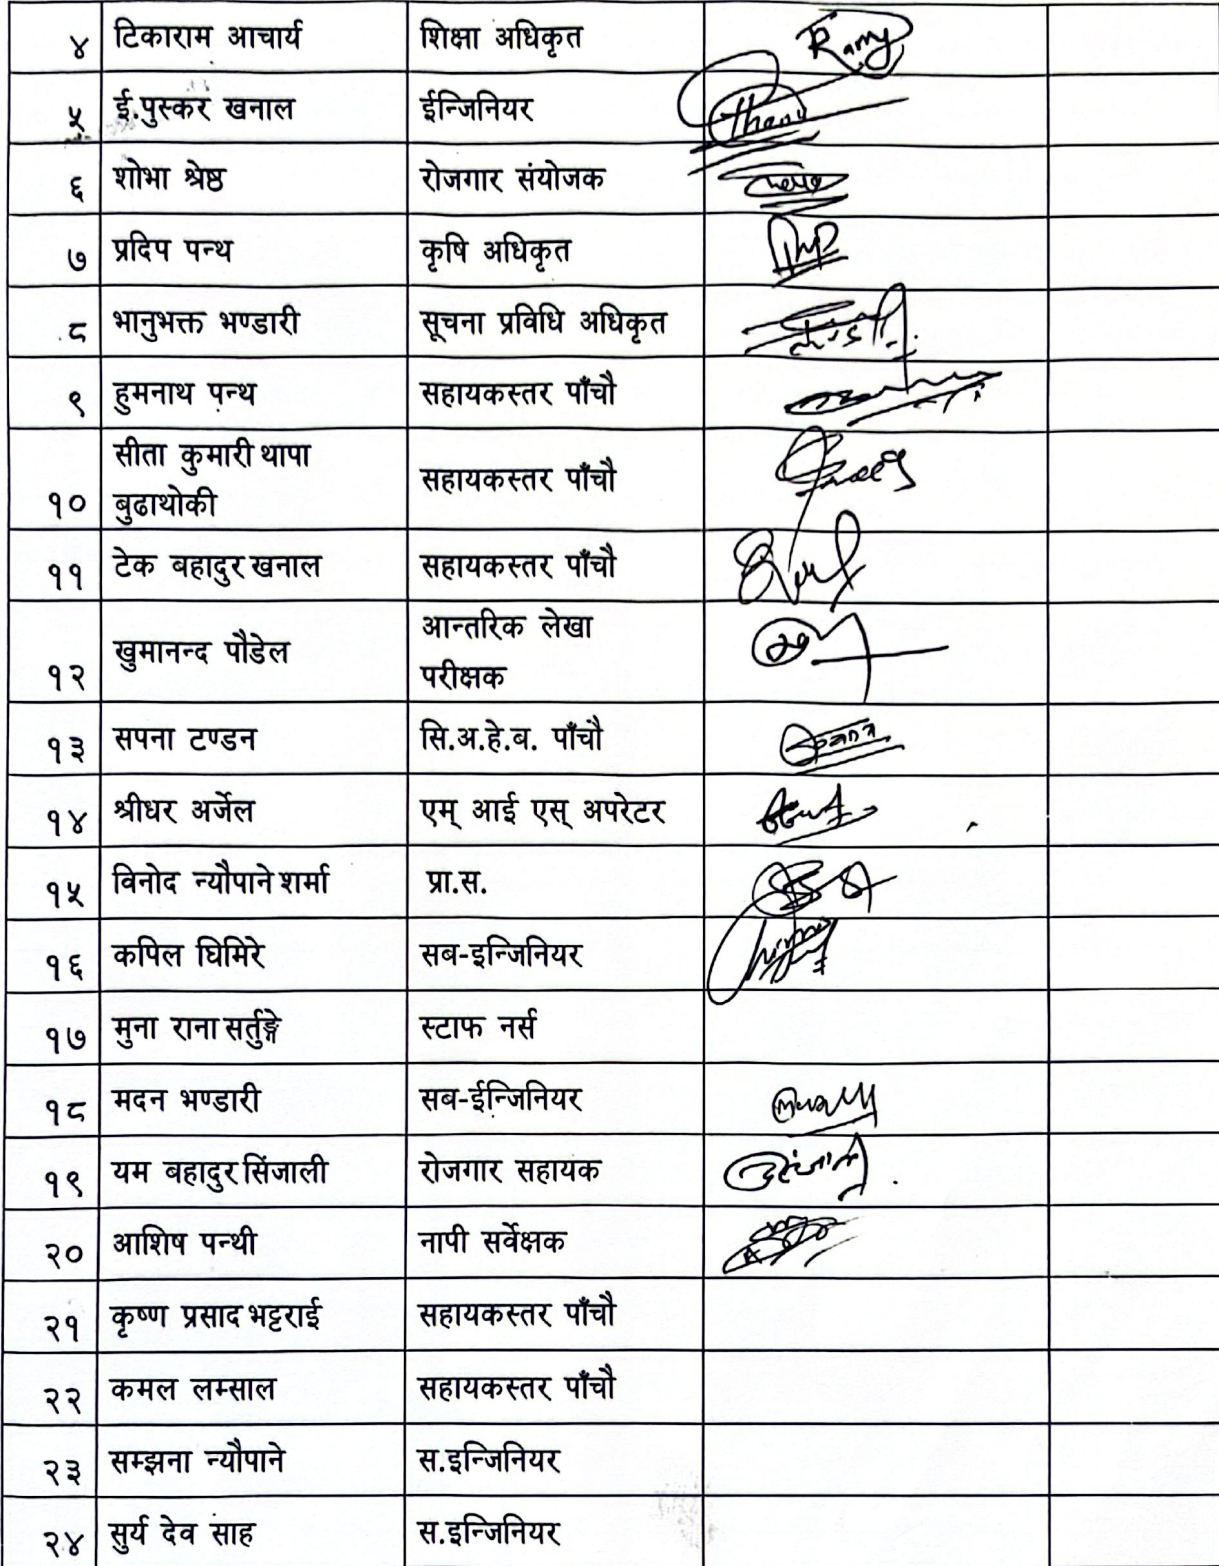 ४ टिकाराम आचार्य शिक्षा अधिकृत
५ ई.पुस्कर खनाल ईन्जिनियर
६ शोभा श्रेष्ठ रोजगार संयोजक
७ प्रदिप पन्थ कृषि अधिकृत
८ भानुभक्त भण्डारी सूचना प्रविधि अधिकृत
९ हुमनाथ पन्थ सहायकस्तर पाँचौ
सीता कुमारी थापा
१० बुढाथोकी सहायकस्तर पाँचौ
११ टेक बहादुर खनाल सहायकस्तर पाँचौ
आन्तरिक लेखा
१२ खुमानन्द पौडेल परीक्षक
१३ सपना टण्डन सि.अ.हे.ब. पाँचौ
१४ श्रीधर अर्जेल एम् आई एस् अपरेटर
१५ विनोद न्यौपाने शर्मा प्रा.स.
१६ कपिल घिमिरे सब-इन्जिनियर
१७ मुना राना सर्तुङ्गे स्टाफ नर्स
१८ मदन भण्डारी सब-ईन्जिनियर
१९ यम बहादुर सिंजाली रोजगार सहायक
२० आशिष पन्थी नापी सर्वेक्षक
२१ कृष्ण प्रसाद भट्टराई सहायकस्तर पाँचौ
२२ कमल लम्साल सहायकस्तर पाँचौ
२३ सम्झना न्यौपाने स.इन्जिनियर
२४ सुर्य देव साह स.इन्जिनियर